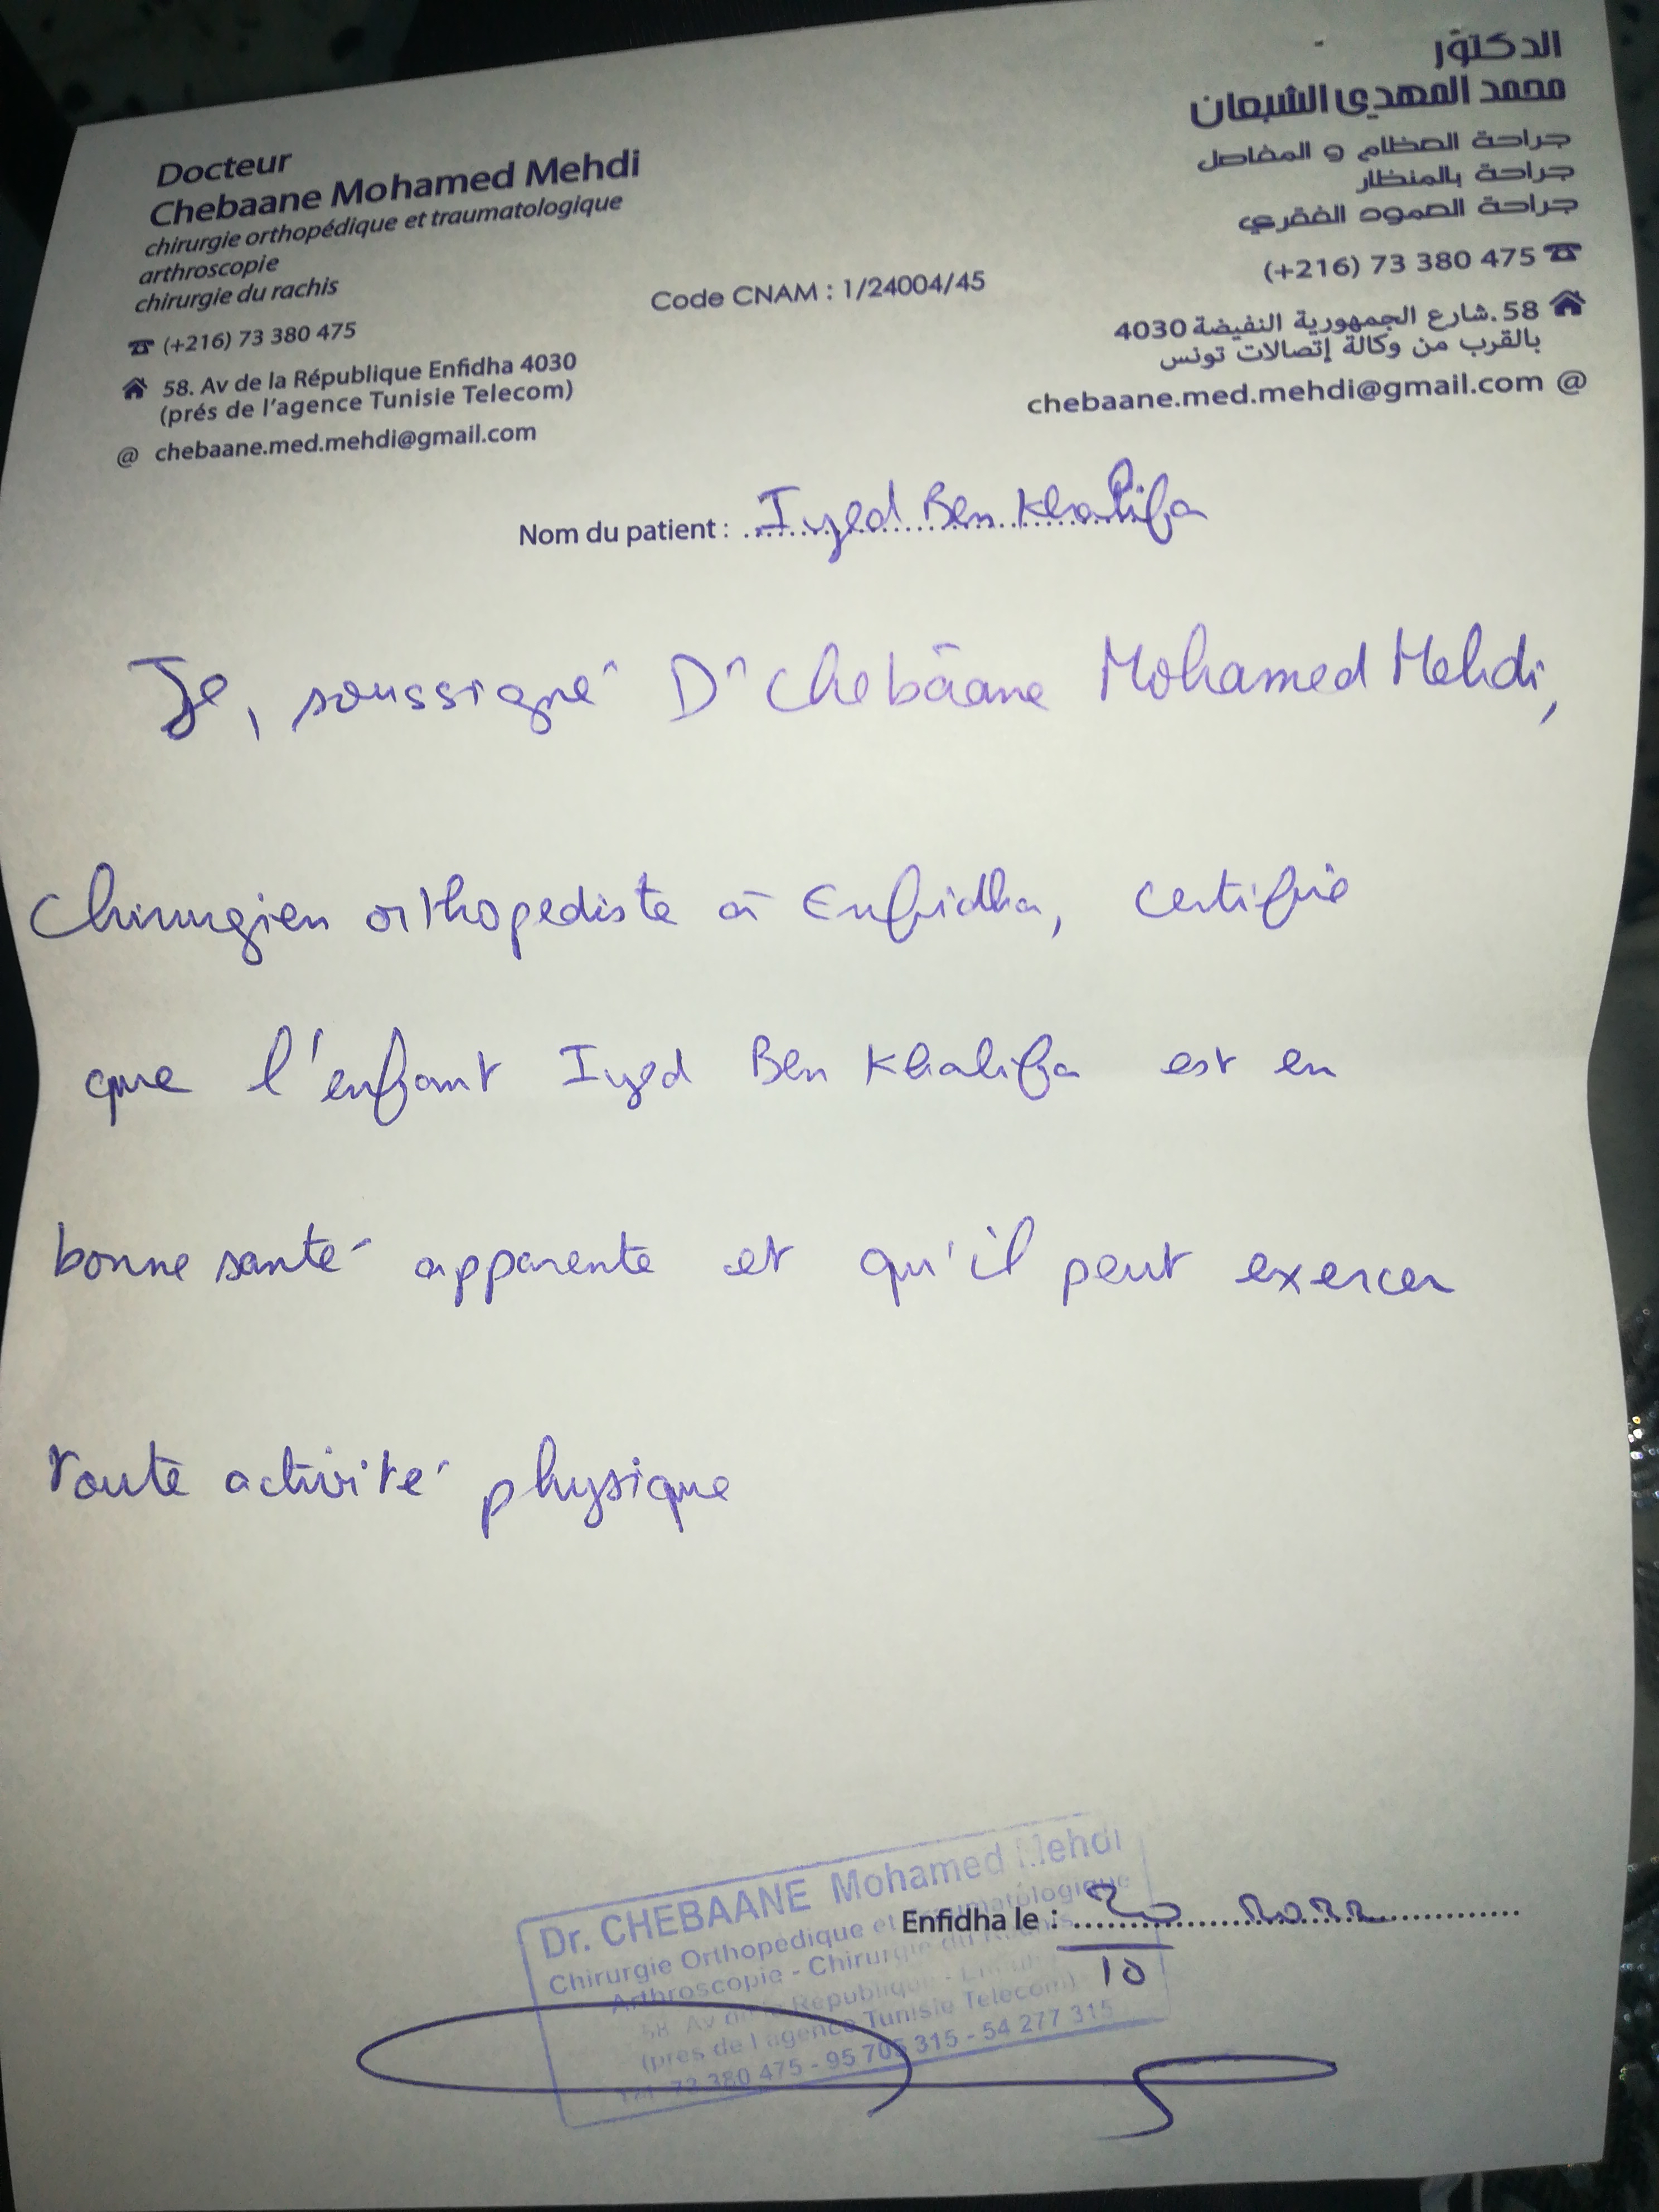 Docteur
Chebaane Mohamed Mehdi
chirurgie orthopédique et traumatologique
arthroscopie
chirurgie du rachis
(+216) 73 380 475
58. Av de la République Enfidha 4030
(prés de l'agence Tunisie Telecom)
@ chebaane.med.mehdi@gmail.com
Code CNAM : 1/24004/45
الدكتور
محمد المهدي الشبعان
جراحة العظام و المفاصل
جراحة بالمنظار
جراحة العمود الفقري
(+216) 73 380 475
58.شارع الجمهورية النفيضة 4030
بالقرب من وكالة إتصالات تونس
chebaane.med.mehdi@gmail.com @
Nom du patient : Iyed Ben Khalifa
Je, soussigné Dr Chebâane Mohamed Mehdi,
Chirurgien orthopediste à Enfidha, certifie
que l'enfant Iyed Ben Khalifa est en
bonne santé apparente et qu'il peut exercer
toute activité physique
Enfidha le : 20 2022
10
Dr. CHEBAANE Mohamed Mehdi
Chirurgie Orthopédique et Traumatologique
Arthroscopie - Chirurgie du Rachis
58. Av de la République -
(près de l'agence Tunisie Telecom)
Tél. 73 380 475 - 95 705 315 - 54 277 315